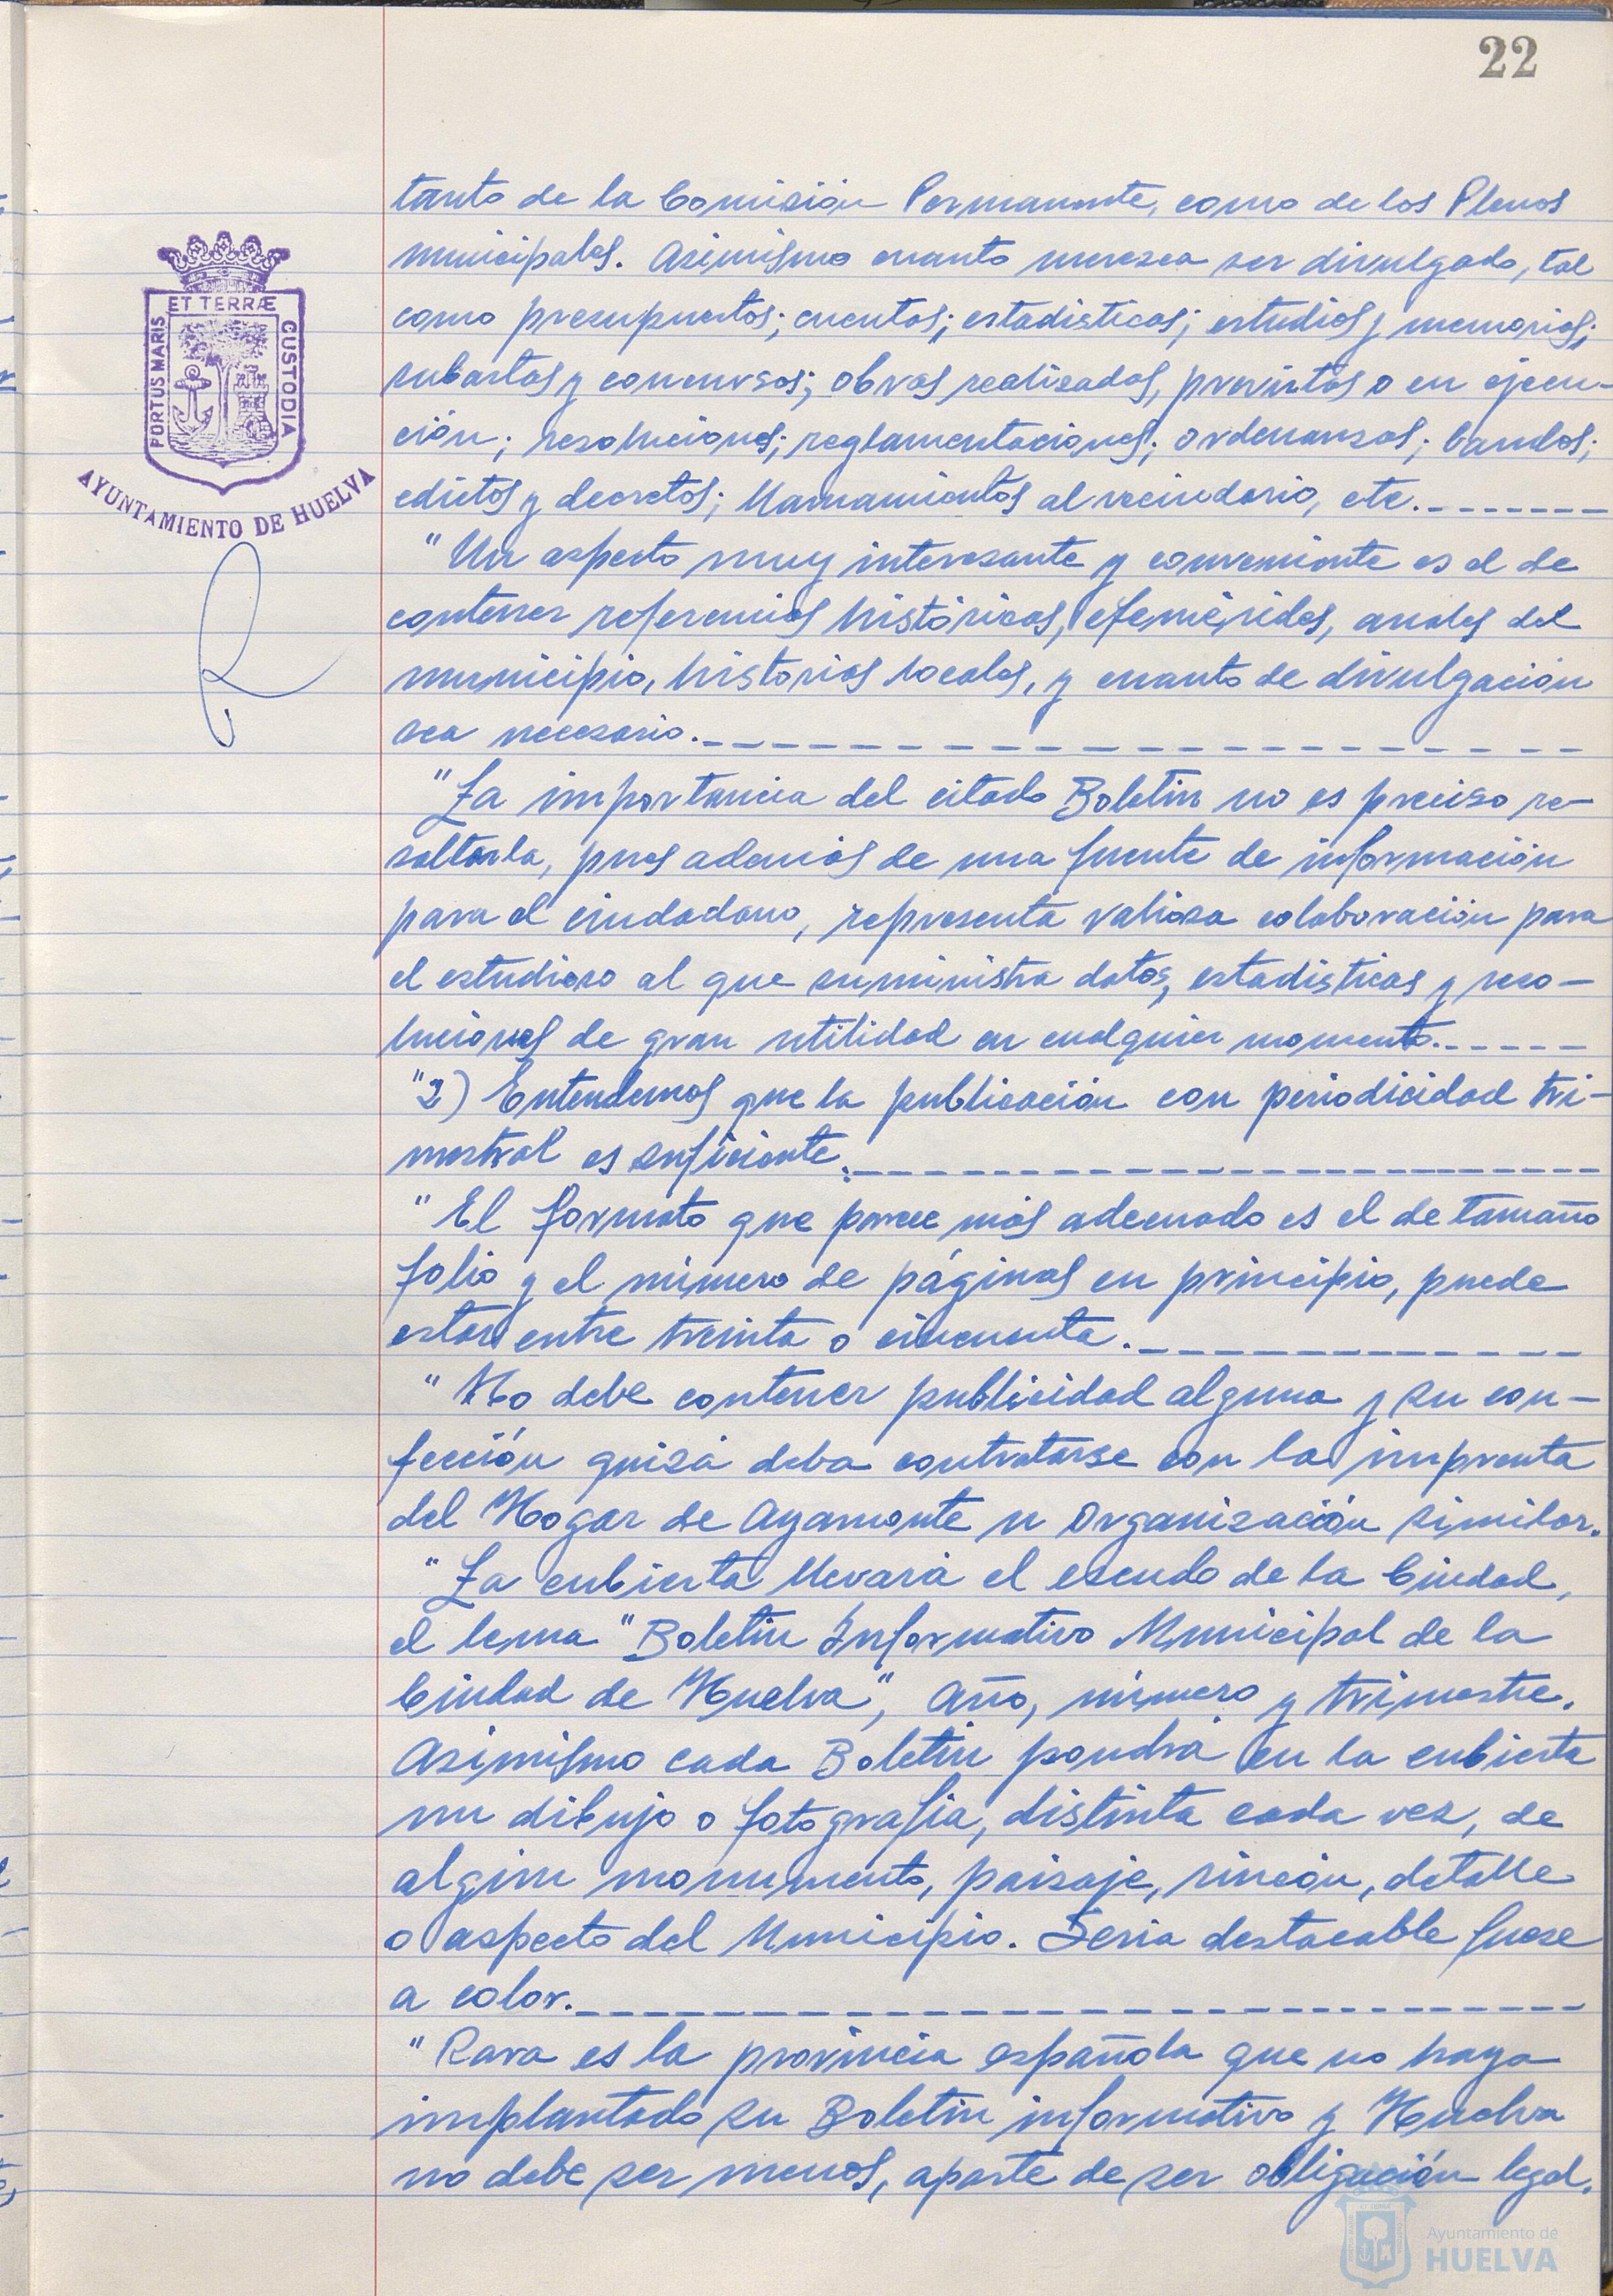 22
tanto de la Comisión Permanente, como de los Plenos
municipales. Asimismo cuanto merezca ser divulgado, tal
como presupuestos; cuentas; estadísticas; estudios y memorias;
subastas y concursos; obras realizadas, previstas o en ejecu-
ción; resoluciones; reglamentaciones; ordenanzas; bandos;
edictos y decretos; llamamientos al vecindario, etc.--------
"Un aspecto muy interesante y conveniente es el de
contener referencias históricas, efemérides, anales del
municipio, historias locales, y cuanto de divulgación
sea necesario.------------------------
"La importancia del citado Boletín no es preciso re-
saltarla, pues además de una fuente de información
para el ciudadano, representa valiosa colaboración para
el estudioso al que suministra datos, estadísticas y reso-
luciones de gran utilidad en cualquier momento.------
"2) Entendemos que la publicación con periodicidad tri-
mestral es suficiente.------------------------
"El formato que parece más adecuado es el de tamaño
folio y el número de páginas en principio, puede
estar entre treinta o cincuenta.--------------
"No debe contener publicidad alguna y su con-
fección quizá deba contratarse con la imprenta
del Hogar de Ayamonte u Organización similar.
"La cubierta llevará el escudo de la Ciudad,
el lema "Boletín Informativo Municipal de la
Ciudad de Huelva", Año, número y trimestre.
Asimismo cada Boletín pondrá en la cubierta
un dibujo o fotografía, distinta cada vez, de
algún monumento, paisaje, rincón, detalle
o aspecto del Municipio. Sería destacable fuese
a color.------------------------------
"Rara es la provincia española que no haya
implantado su Boletín informativo y Huelva
no debe ser menos, aparte de ser obligación legal.
PORTUS MARIS
ET TERRÆ
CUSTODIA
AYUNTAMIENTO DE HUELVA
Ayuntamiento de
HUELVA